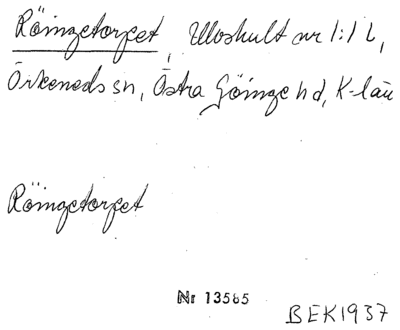 Röingetorpet, Ulvshult nr 1:1 L,
Örkeneds sn, Östra Göinge hd, K-län
Röingetorpet
Nr 13565
BEK1937